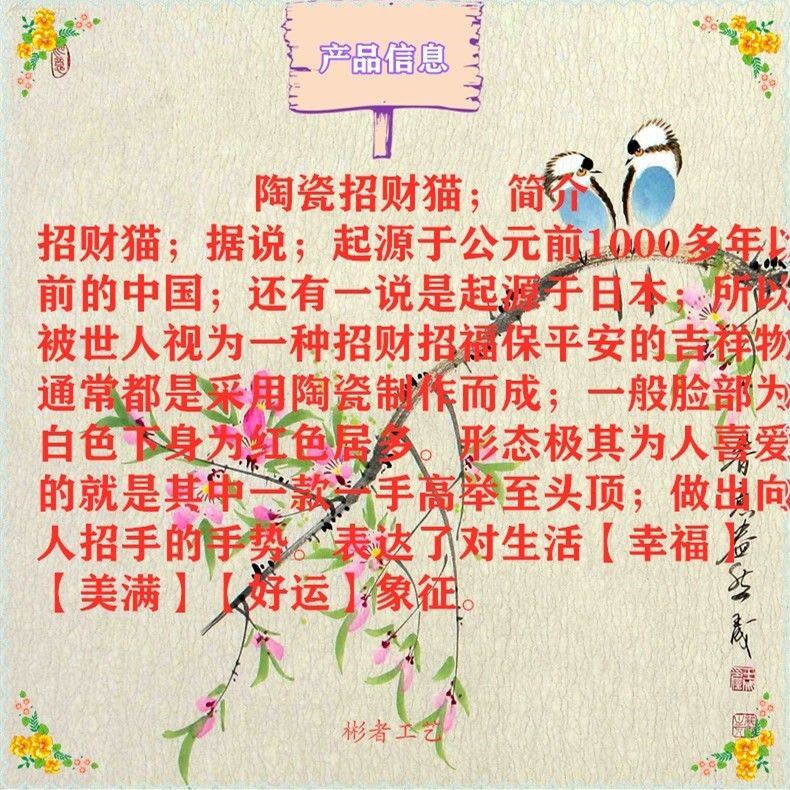 产品信息
陶瓷招财猫；简介
招财猫；据说；起源于公元前1000多年以
前的中国；还有一说是起源于日本；所以
被世人视为一种招财招福保平安的吉祥物
通常都是采用陶瓷制作而成；一般脸部为
白色下身为红色居多。形态极其为人喜爱
的就是其中一款一手高举至头顶；做出向
人招手的手势。表达了对生活【幸福】
【美满】【好运】象征。
彬者工艺